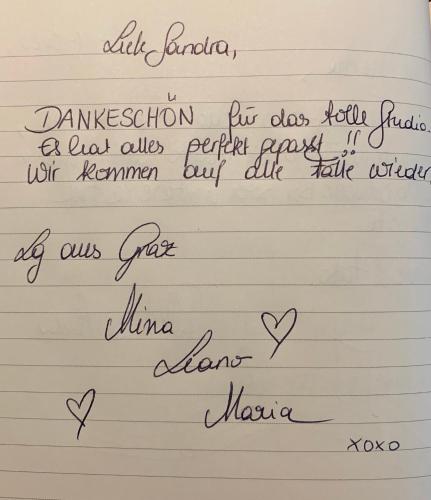 Liebe Sandra,
DANKESCHÖN für das tolle Studio.
Es hat alles perfekt gepasst !!
Wir kommen auf alle Fälle wieder
Lg aus Graz
Mina
Leano
Maria
xoxo